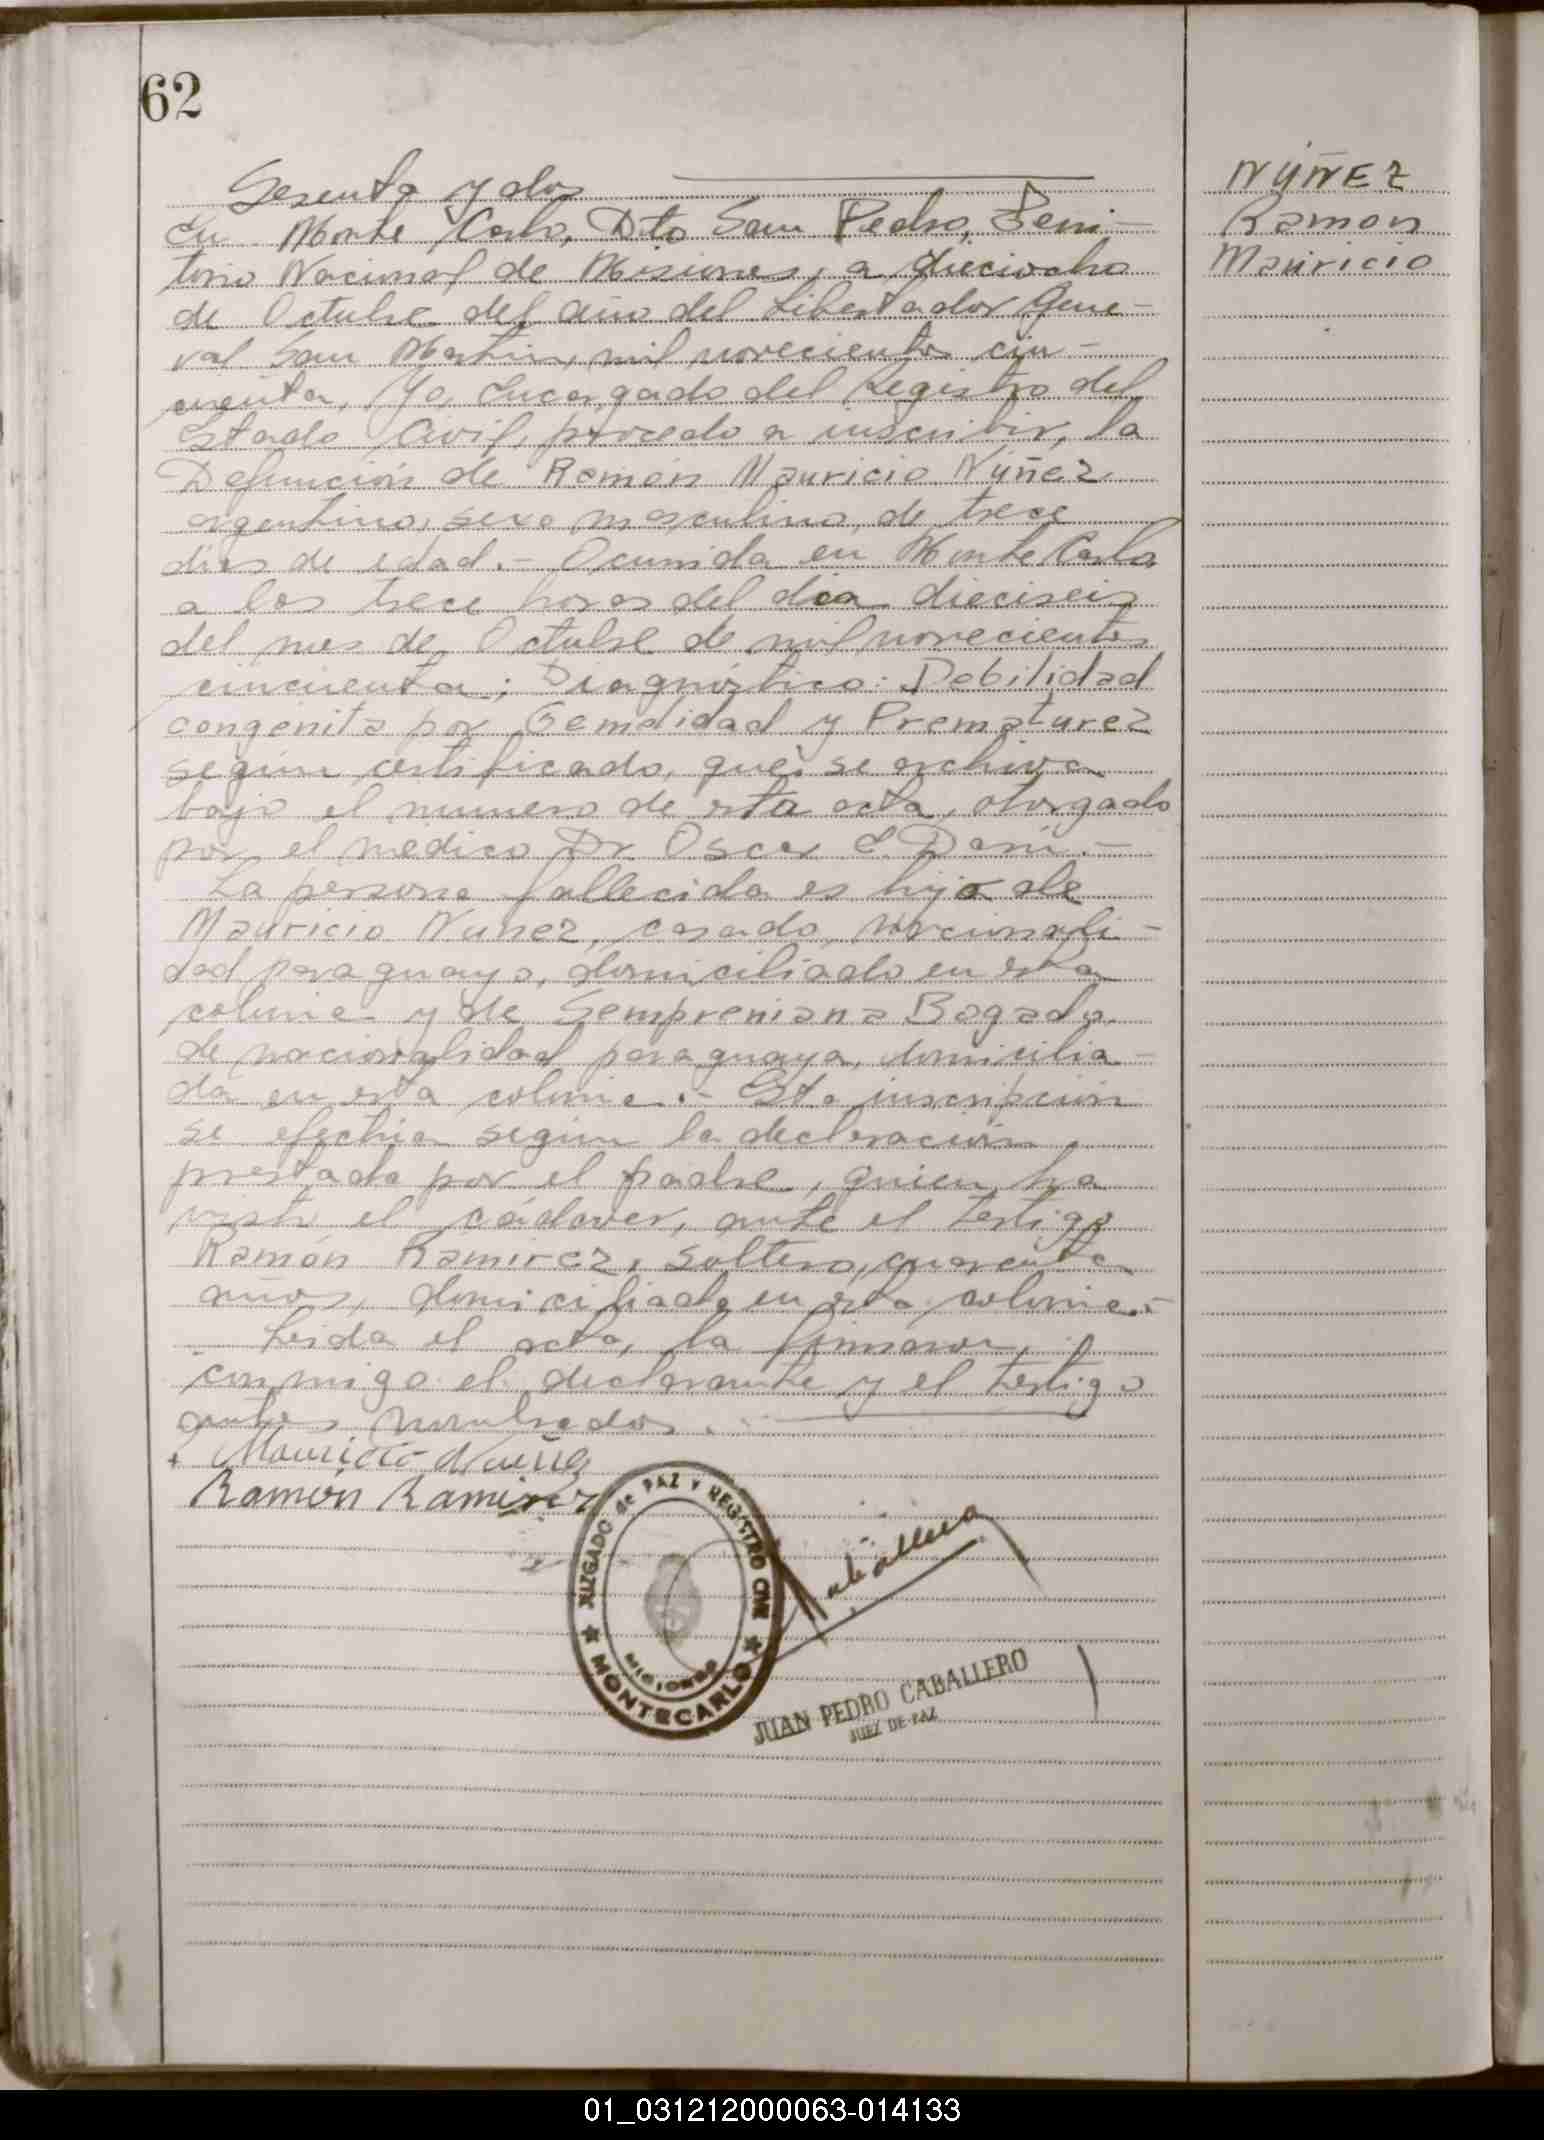 62
Sesenta y dos
En Monte Carlo, Dto San Pedro, Terri-
torio Nacional de Misiones, a dieciocho
de Octubre del año del Libertador Gene-
ral San Martin, mil novecientos cin-
cuenta, Yo, Encargado del Registro del
Estado Civil, procedo a inscribir, la
Defunción de Ramón Mauricio Núñez
argentino, sexo masculino, de trece
dias de edad.- Ocurrida en Monte Carlo
a las trece horas del dia dieciseis
del mes de Octubre de mil novecientos
cincuenta; Diagnóstico: Debilidad
congénita por Gemelidad y Prematurez
según certificado, que se archiva
bajo el numero de esta acta, otorgado
por el médico Dr. Oscar E.
La persona fallecida es hijo de
Mauricio Nuñez, casado, nacionali-
dad paraguaya, domiciliado en esta
colonia y de Sempreniana Bogado
de nacionalidad paraguaya, domicilia-
da en esta colonia.- Esta inscripción
se efectúa según la declaración
prestada por el padre, quien ha
visto el cádaver, ante el testigo
Ramón Ramirez, soltero, cuarenta
años, domiciliado en esta colonia.-
Leida el acta, la firmaron,
conmigo el declarante y el testigo
antes nombrados.
Mauricio Nuñez
Ramón Ramirez
JUZGADO de PAZ Y REGISTRO CIVIL
MISIONES
MONTECARLO
Caballero
JUAN PEDRO CABALLERO
JUEZ DE PAZ
NÚÑEZ
Ramon
Mauricio
01_031212000063-014133